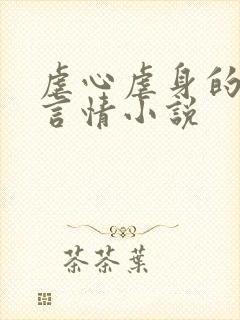 虐心虐身的
言情小説
茶茶葉